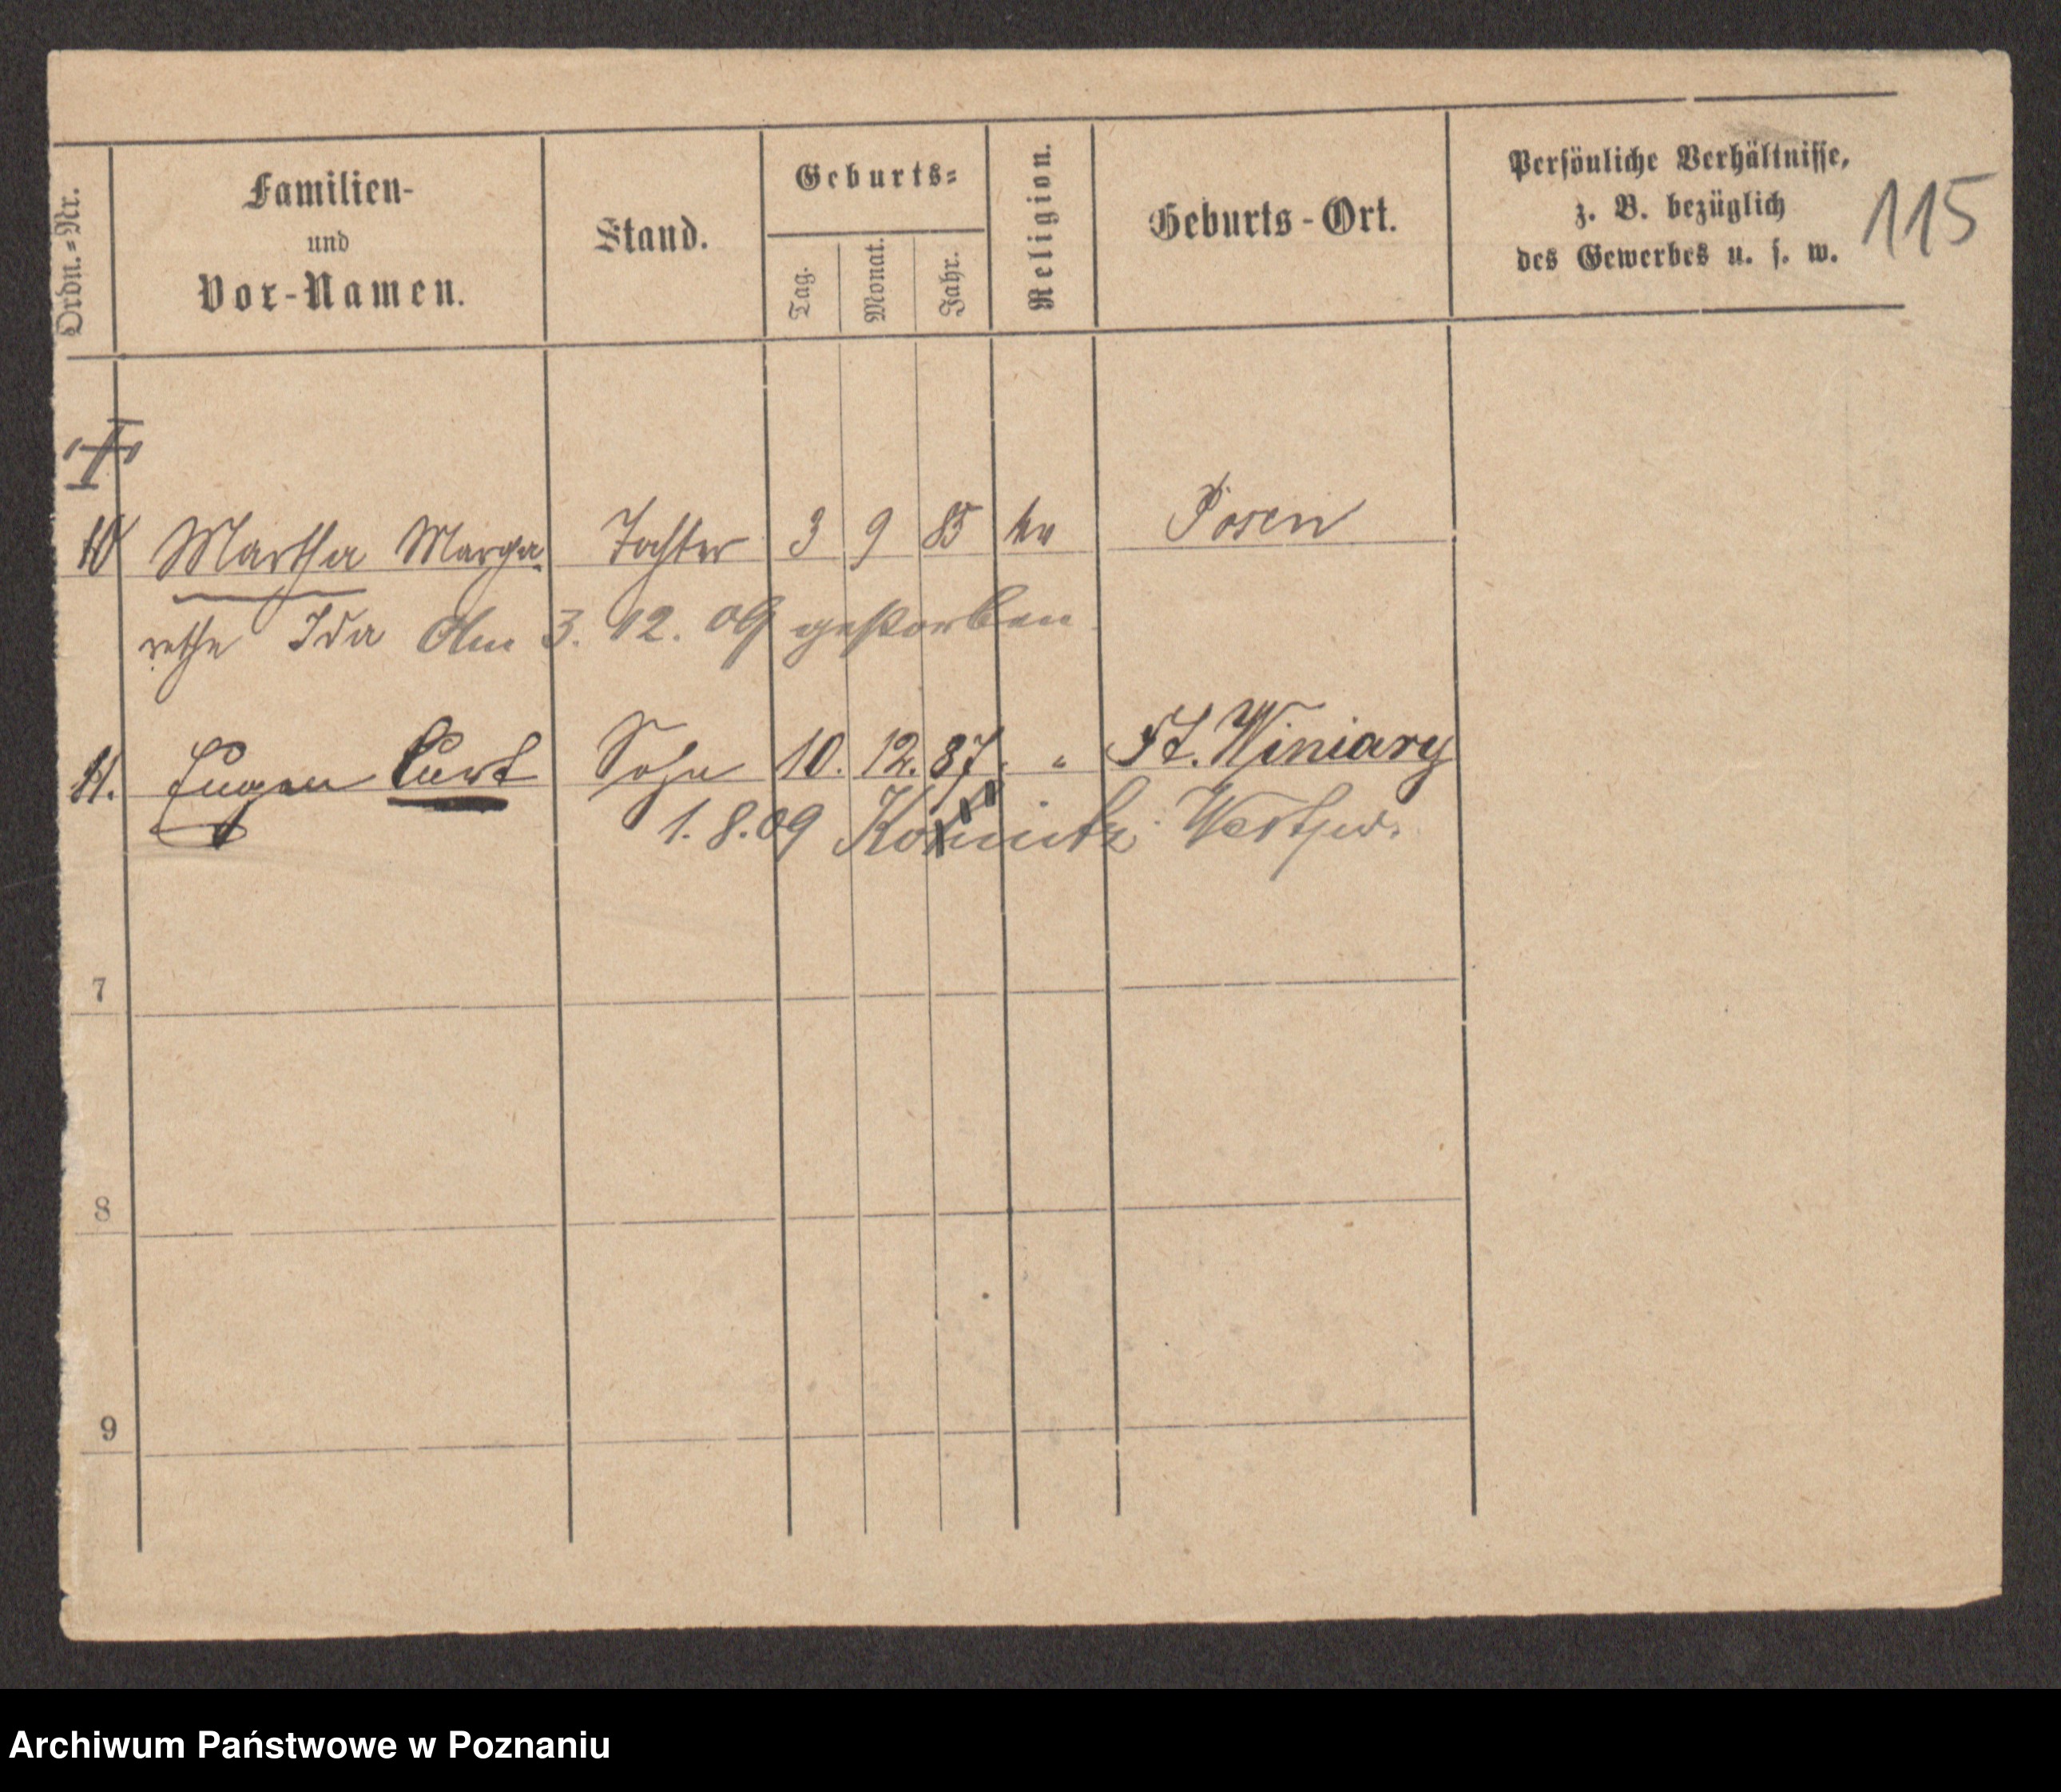 115
Ordn.=Nr.
Familien-
und
Vor-Namen.
Stand.
Geburts=
Tag.
Monat.
Jahr.
Religion.
Geburts-Ort.
Persönliche Verhältnisse,
z. B. bezüglich
des Gewerbes u. s. w.
10 Martha Marga- Tochter 3 9 85 Posen
rethe Ida Am 3. 12. 09 gestorben.
11. Eugen Curt Sohn 10. 12. 87. " St. Winiary
1. 8. 09 Konitz Westpr.
7
8
9
Archiwum Państwowe w Poznaniu